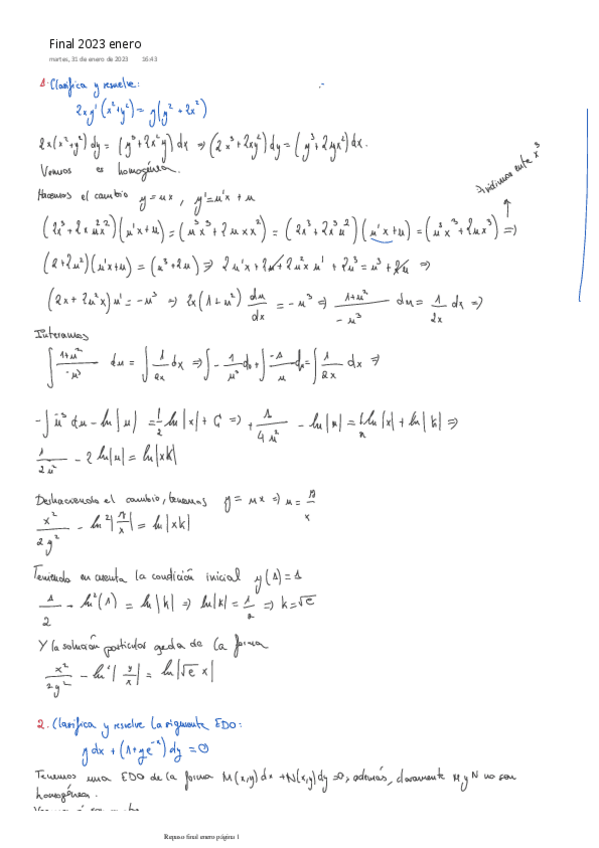 Final 2023 enero
martes, 31 de enero de 2023 16:43
1. Clasifica y resuelve:
2xy'(x²+y²) = y(y²+2x²)
2x(x²+y²)dy = (y³+2x²y)dx ⇒ (2x³+2xy²)dy = (y³+2yx²)dx.
Vemos es homogénea.
Hacemos el cambio y=ux, y'=u'x+u
Dividimos entre x³
(2x³+2xu²x²)(u'x+u) = (u³x³+2uxx²) = (2x³+2x³u²)(u'x+u) = (u³x³+2ux³) ⇒
(2+2u²)(u'x+u) = (u³+2u) ⇒ 2u'x+2u+2u²xu'+2u³=u³+2u ⇒
(2x+2u²x)u' = -u³ ⇒ 2x(1+u²) du/dx = -u³ ⇒ (1+u²)/(-u³) du = 1/(2x) dx ⇒
Integramos
∫ (1+u²)/(-u³) du = ∫ 1/(2x) dx ⇒ ∫ -1/u³ du + ∫ -1/u du = ∫ 1/(2x) dx ⇒
-∫ u⁻³ du - ln|u| = 1/2 ln|x| + C ⇒
1/(2u²) - 2 ln|u| = ln|xk|
Deshaciendo el cambio, tenemos y = ux ⇒ u = y/x
x²/(2y²) - ln²|y/x| = ln|xk|
Teniendo en cuenta la condición inicial y(1)=1
1/2 - ln²(1) = ln|k| ⇒ ln|k| = 1/2 ⇒ k=√e
Y la solución particular queda de la forma
x²/(2y²) - ln²|y/x| = ln|√e x|
2. Clasifica y resuelve la siguiente EDO:
ydx + (1+ye⁻ˣ)dy = 0
Tenemos una EDO de la forma M(x,y)dx + N(x,y)dy =0, además, claramente M y N no son
homogénea.
Repaso final enero página 1